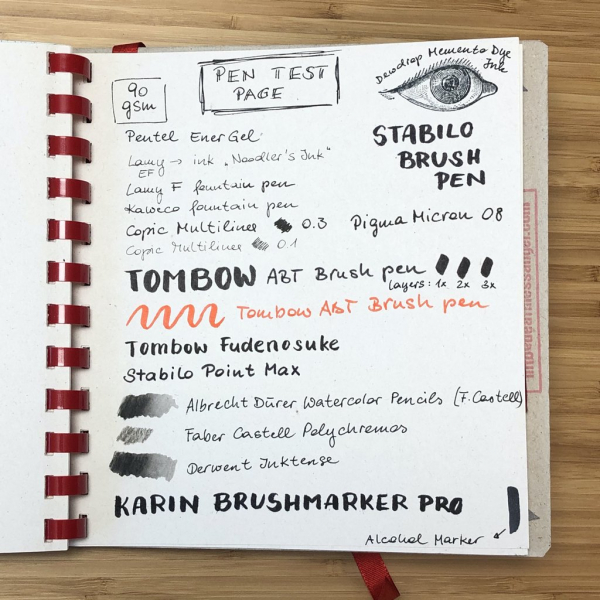 90
gsm
PEN TEST
PAGE
Dewdrop Memento Dye
Ink
Pentel EnerGel
STABILO
BRUSH
PEN
Lamy → ink „Noodler's Ink"
EF
Lamy F fountain pen
Kaweco fountain pen
Copic Multiliner 0.3
Pigma Micron 08
Copic Multiliner 0.1
TOMBOW ABT Brush pen
layers: 1x 2x 3x
Tombow ABT Brush pen
Tombow Fudenosuke
Stabilo Point Max
Albrecht Dürer Watercolor Pencils (F. Castell)
Faber Castell Polychromos
Derwent Inktense
KARIN BRUSHMARKER PRO
Alcohol Marker